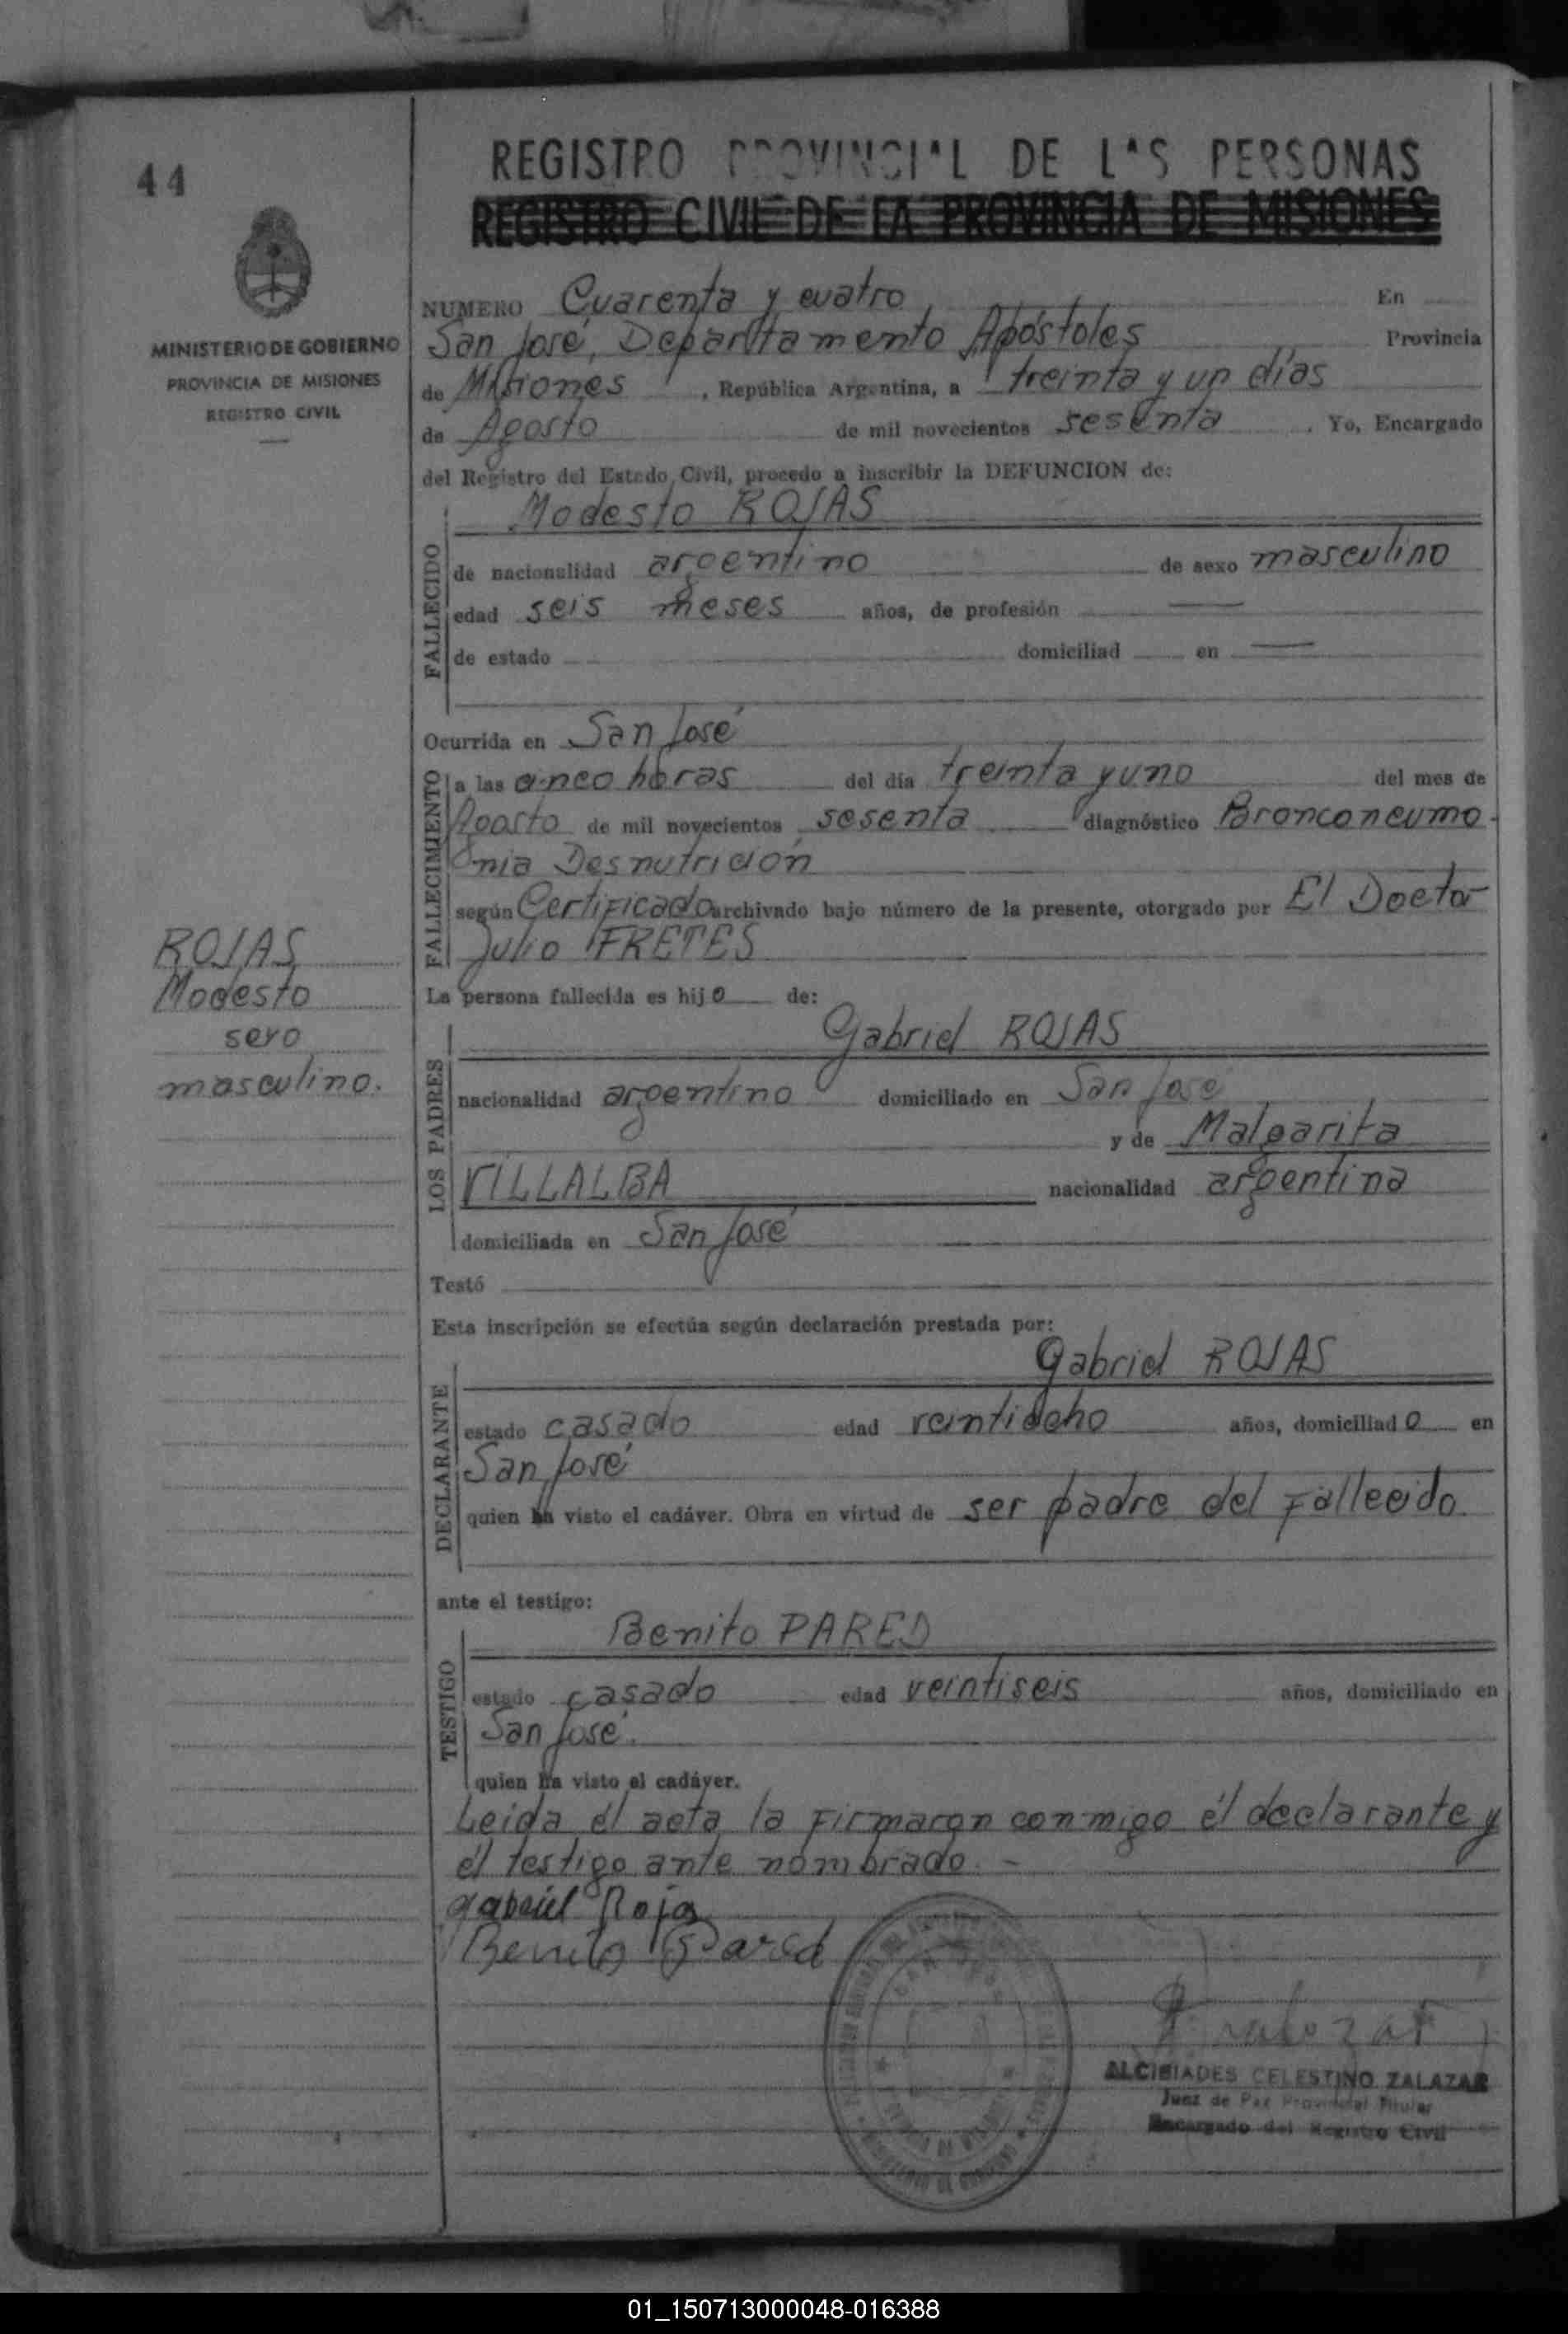 44
REGISTRO PROVINCIAL DE LAS PERSONAS
REGISTRO CIVIL DE LA PROVINCIA DE MISIONES
MINISTERIO DE GOBIERNO
PROVINCIA DE MISIONES
REGISTRO CIVIL
NUMERO Cuarenta y cuatro En
San José, Departamento Apóstoles Provincia
de Misiones, República Argentina, a treinta y un días
de Agosto de mil novecientos sesenta. Yo, Encargado
del Registro del Estado Civil, procedo a inscribir la DEFUNCION de:
Modesto ROJAS
FALLECIDO
de nacionalidad argentino de sexo masculino
edad seis meses años, de profesión —
de estado domiciliad en —
Ocurrida en San José
FALLECIMIENTO
a las cinco horas del día treinta y uno del mes de
Agosto de mil novecientos sesenta diagnóstico Bronconeumo-
nia Desnutrición
según Certificado archivado bajo número de la presente, otorgado por El Doctor
Julio FRETES
La persona fallecida es hijo de:
ROJAS
Modesto
sexo
masculino.
LOS PADRES
Gabriel ROJAS
nacionalidad argentino domiciliado en San José
y de Malgarita
VILLALBA nacionalidad argentina
domiciliada en San José
Testó
Esta inscripción se efectúa según declaración prestada por:
DECLARANTE
Gabriel ROJAS
estado casado edad veintiocho años, domiciliado en
San José
quien ha visto el cadáver. Obra en virtud de ser padre del fallecido.
ante el testigo:
TESTIGO
Benito PARED
estado casado edad veintiseis años, domiciliado en
San José.
quien ha visto el cadáver.
Leida él acta la firmaron conmigo él declarante y
él testigo ante nombrado. -
Gabriel Rojas
Benito Pared
ALCIBIADES CELESTINO ZALAZAR
Juez de Paz Provincial Titular
Encargado del Registro Civil
01_150713000048-016388